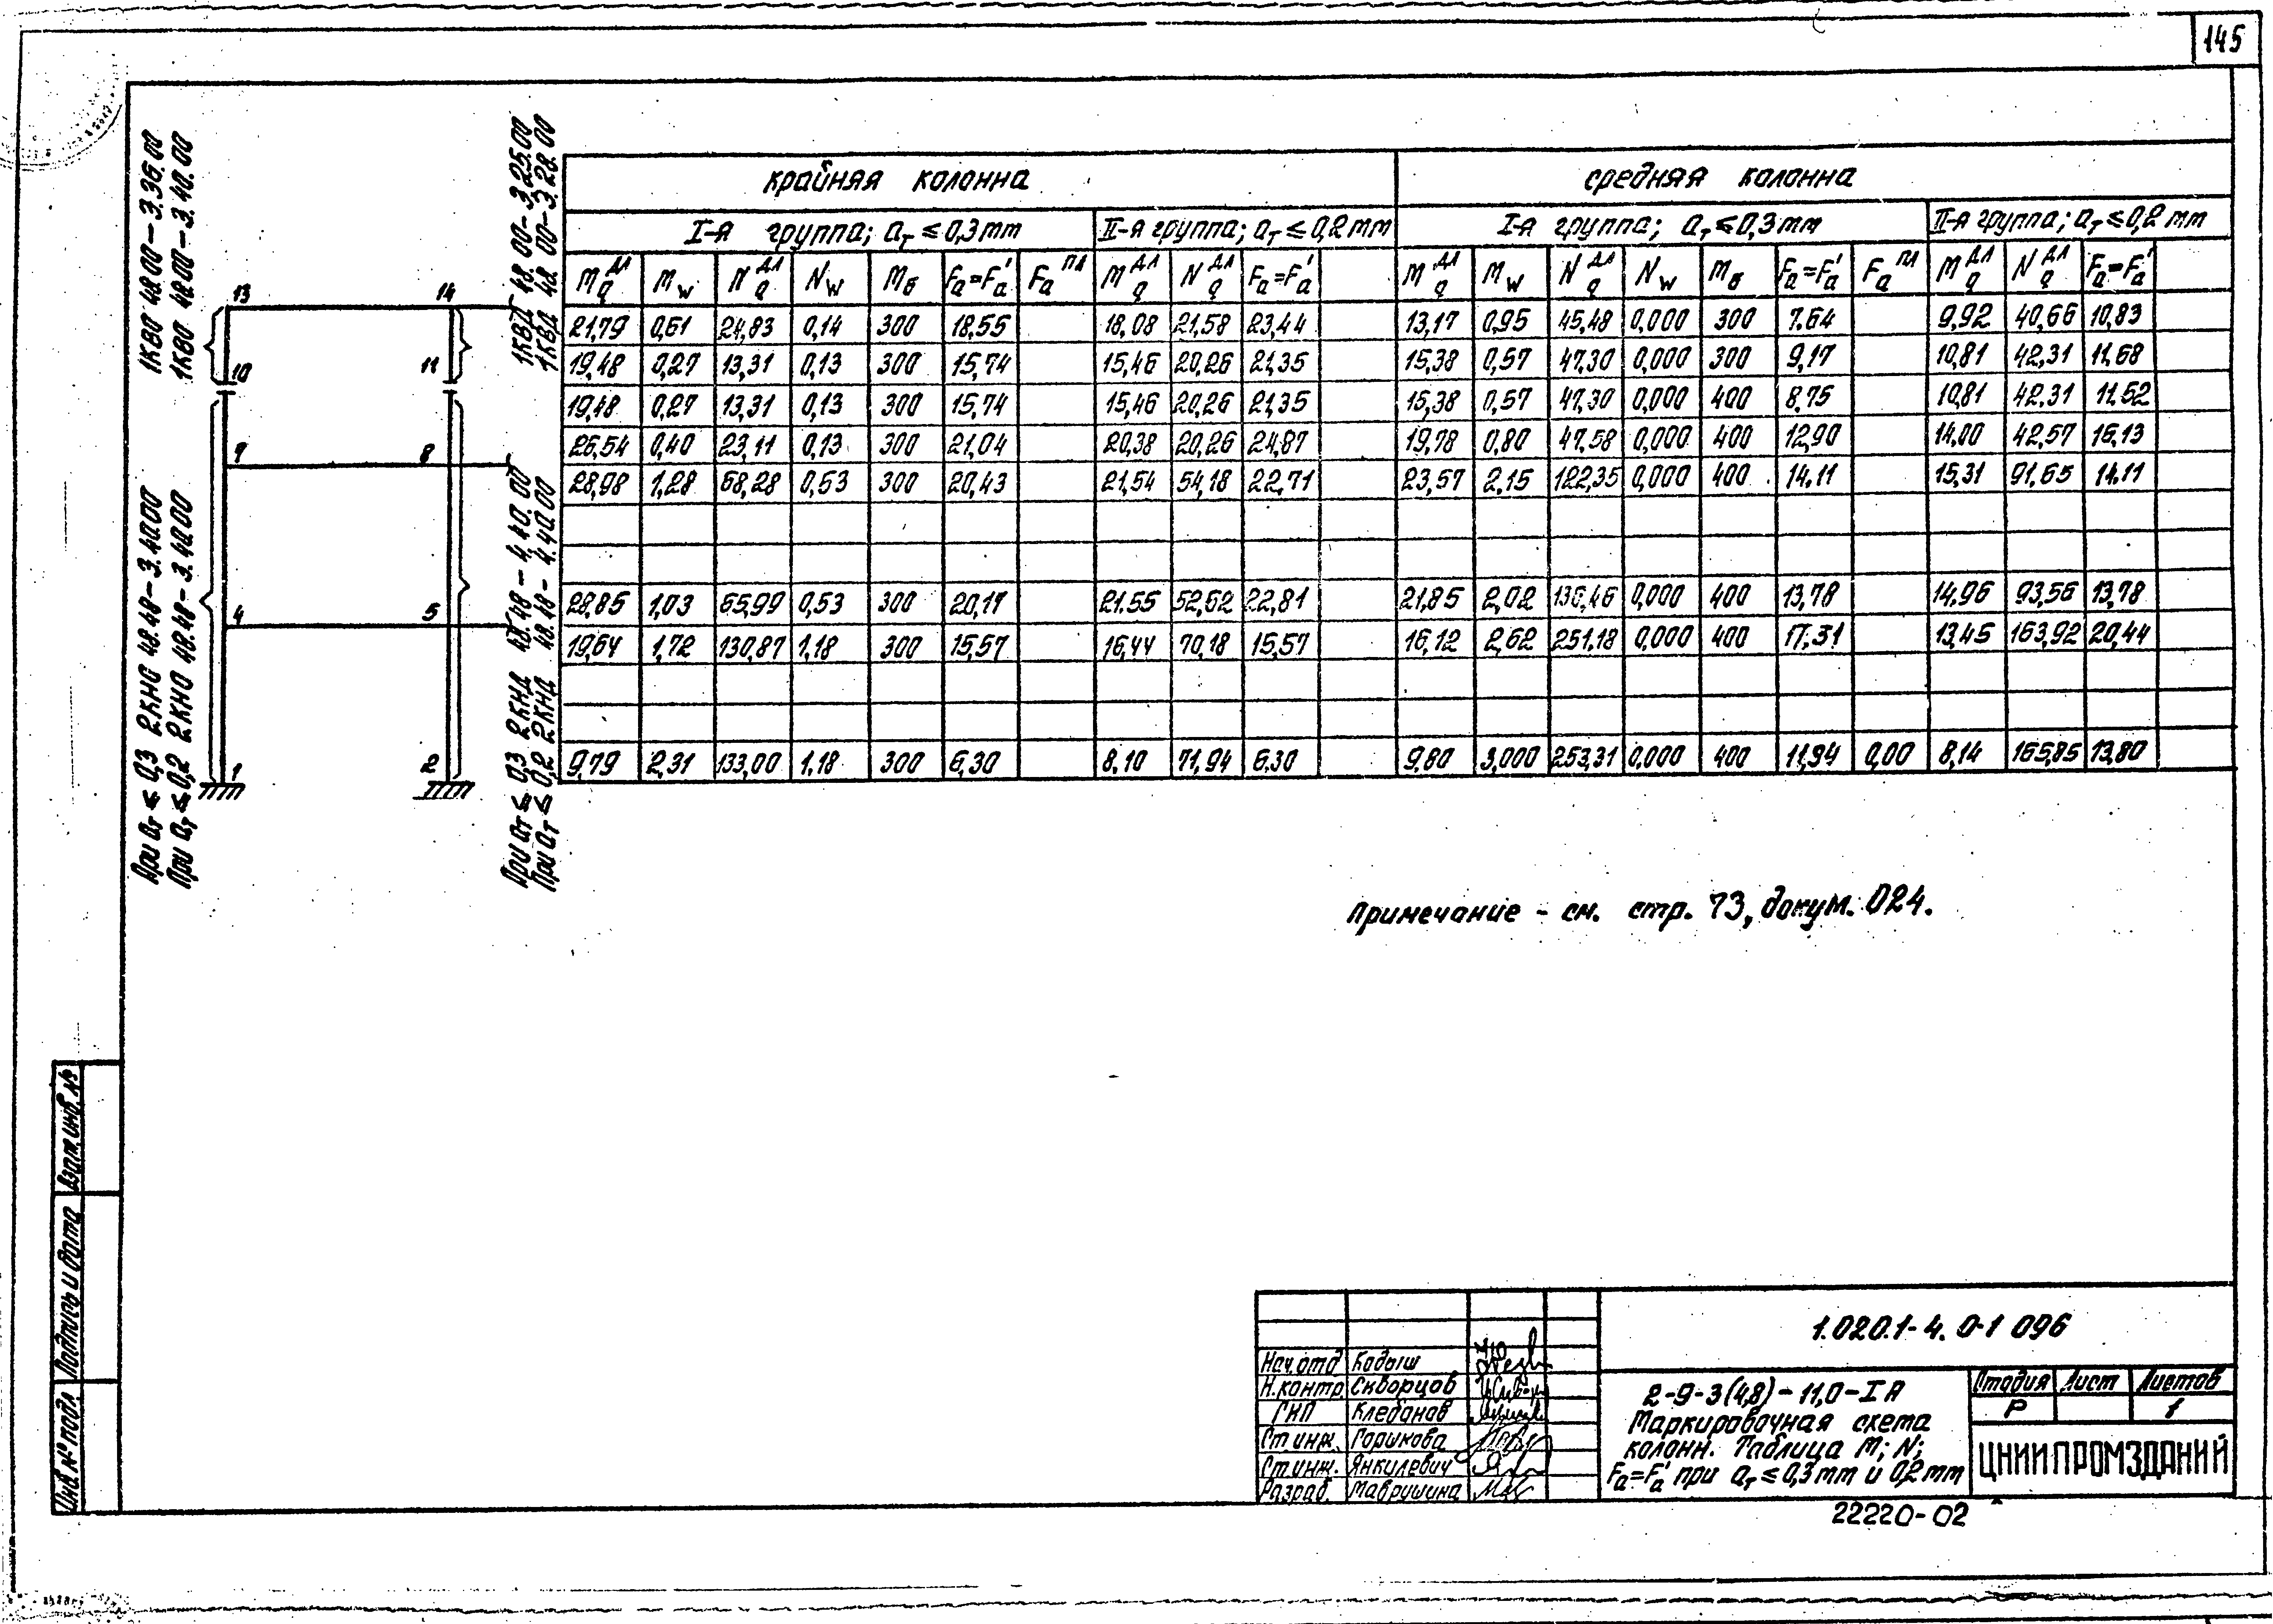 145
1КВО 48.00-3.36.00
1КВО 48.00-3.40.00
1КВД 48.00-3.25.00
1КВД 48.00-3.28.00
13 14
10 11
7 8
4 5
1 2
При aт ≤ 0,3 2КНО 48.48-3.40.00
При aт ≤ 0,2 2КНО 48.48-3.40.00
При aт ≤ 0,3 2КНД 48.48-4.40.00
При aт ≤ 0,2 2КНД 48.48-4.40.00
крайняя колонна средняя колонна
I-я группа; aт ≤ 0,3mm II-я группа; aт ≤ 0,2mm I-я группа; aт ≤ 0,3mm II-я группа; aт ≤ 0,2mm
Mq дл Mw Nq дл Nw Mб Fa=Fa' Fa пл Mq дл Nq дл Fa=Fa' Mq дл Mw Nq дл Nw Mб Fa=Fa' Fa пл Mq дл Nq дл Fa=Fa'
21,79 0,61 24,83 0,14 300 18,55 18,08 21,58 23,44 13,17 0,95 45,48 0,000 300 7.64 9,92 40,66 10,83
19,48 0,27 13,31 0,13 300 15,74 15,46 20,26 21,35 15,38 0,57 47,30 0,000 300 9,17 10,81 42,31 11,68
19,48 0,27 13,31 0,13 300 15,74 15,46 20,26 21,35 15,38 0,57 47,30 0,000 400 8,75 10,81 42,31 11,52
26,54 0,40 23,11 0,13 300 21,04 20,38 20,26 24,87 19,78 0,80 47,58 0,000 400 12,90 14,00 42,57 16,13
28,98 1,28 68,28 0,53 300 20,43 21,54 54,18 22,71 23,57 2,15 122,35 0,000 400 14,11 15,31 91,65 14,11
28,85 1,03 65,99 0,53 300 20,17 21,55 52,62 22,81 21,85 2,02 136,46 0,000 400 13,78 14,96 93,56 13,78
19,64 1,72 130,87 1,18 300 15,57 16,44 70,18 15,57 16,12 2,62 251,18 0,000 400 17,31 13,45 163,92 20,44
9,79 2,31 133,00 1,18 300 6,30 8,10 71,94 6,30 9,80 3,000 253,31 0,000 400 11,94 0,00 8,14 165,85 13,80
Примечание - см. стр. 73, докум. 024.
Взам. инб. №
Подпись и дата
Инв № подл
Нач.отд Кодыш
Н.контр. Скворцов
ГИП Клебанов
Ст.инж. Горшкова
Ст.инж. Янкилевич
Разраб. Маврушина
1.020.1-4. 0-1 096
2-9-3(4,8)-11,0-IА
Маркировочная схема
колонн. Таблица M; N;
Fa=Fa' при aт ≤ 0,3mm и 0,2mm
Стадия Лист Листов
Р 1
ЦНИИПРОМЗДАНИЙ
22220-02